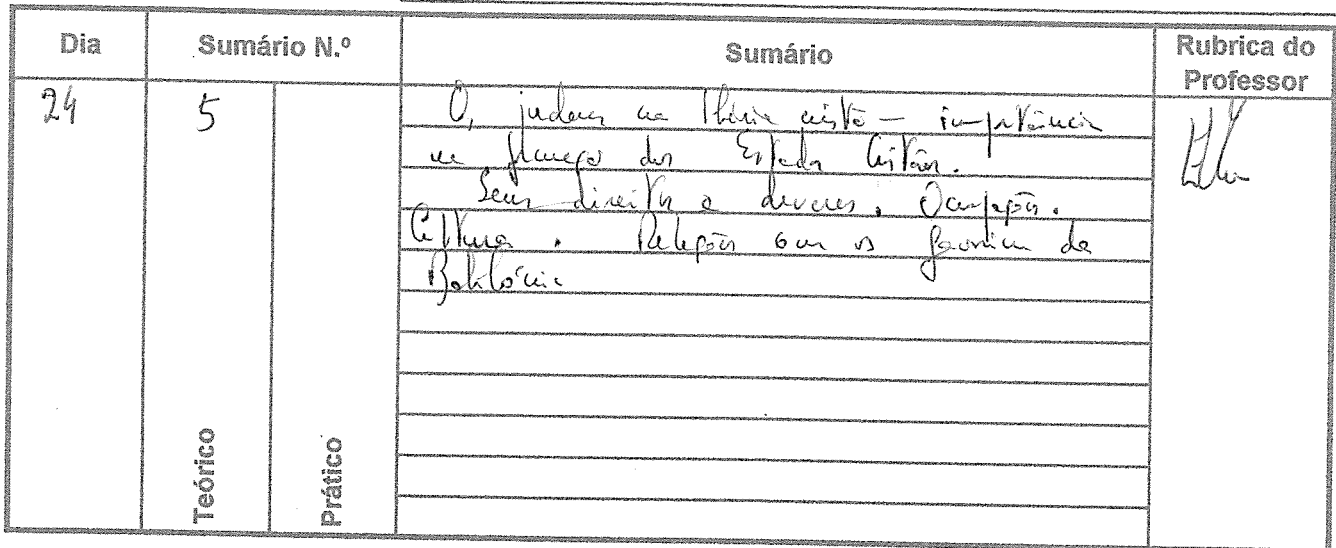 Dia Sumário N.º Sumário Rubrica do Professor
24 5 Os judeus na Ibéria cristã — importância
na finança dos Estados Cristãos.
Seus direitos e deveres. Ocupações.
Cultura. Relações com os da
Babilónia
Teórico Prático